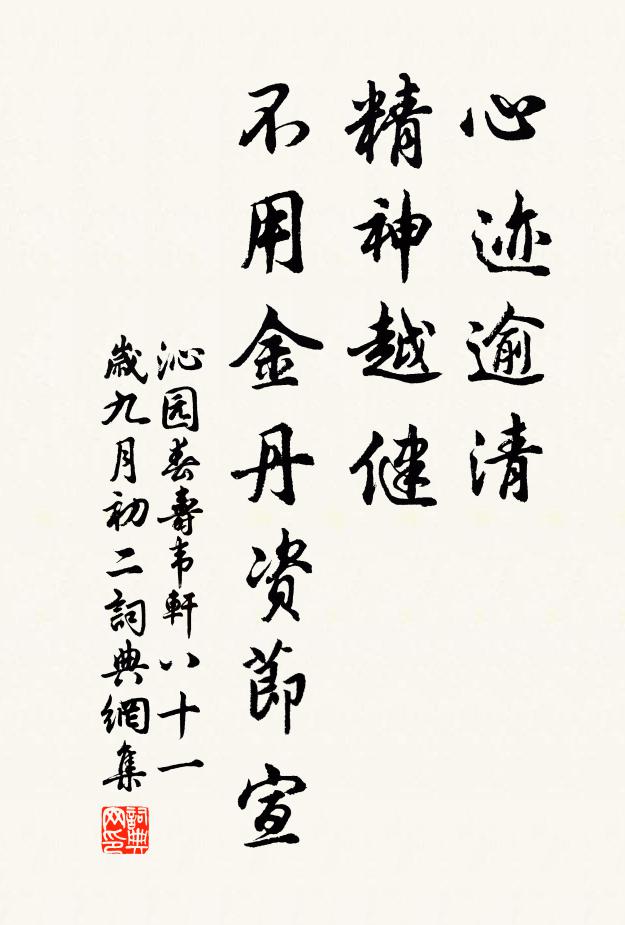 心迹逾清
精神越健
不用金丹资節宣
沁园春壽韦軒八十一
歲九月初二詞典網集
詞典网印